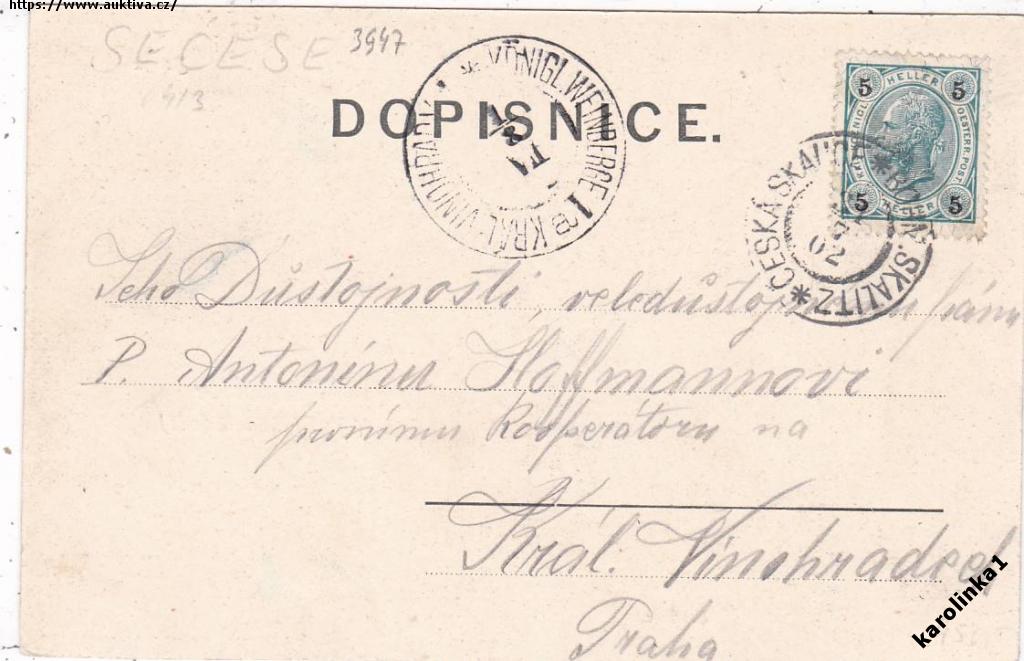 https://www.auktiva.cz/
SECESE 3947
413
DOPISNICE.
* KÖNIGL. WEINBERGE 1 KRÁL. VINOHRADY
5 HELLER 5
KAIS. KÖNIGL. OESTERR. POST.
5 HELLER 5
* ČESKÁ SKALICE * BÖHM. SKALITZ
02
Jeho Důstojnosti, veledůstojnému pánu
P. Antonínu Hoffmannovi
prvnímu kooperátoru na
Král. Vinohradech
Praha
karolinka1